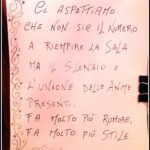 Ci ASPETTIAMO
CHE NON SIA IL NUMERO
A RIEMPIRE LA SALA
MA IL SILENZIO E
L'UNIONE DELLE ANIME
PRESENTI.
FA MOLTO PIÙ RUMORE,
FA MOLTO PIÙ STILE.